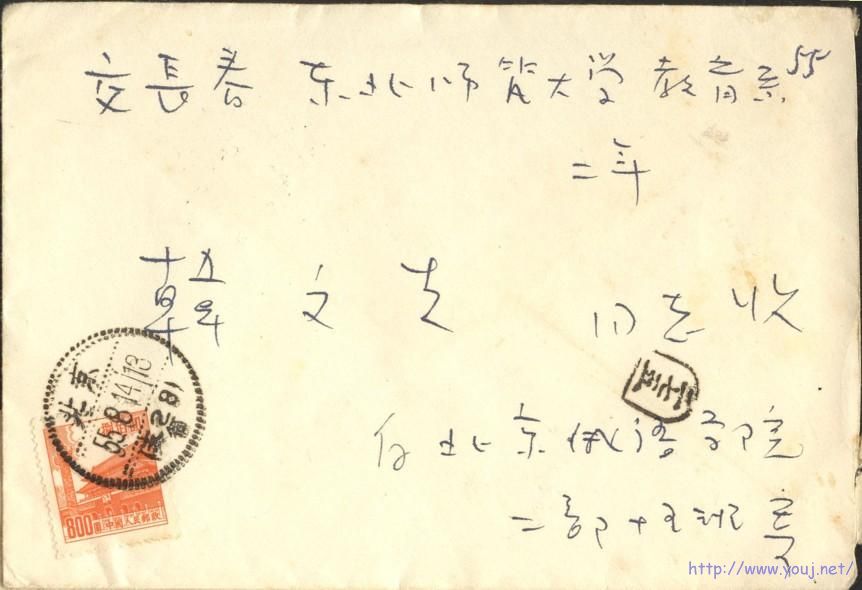 交長春 东北师范大学 教育系55
二年
韓文 同志收
自北京俄语学院
二部十五班寄
北京
55.8.14 13
(支29)
800圓 中國人民郵政
http://www.youj.net/